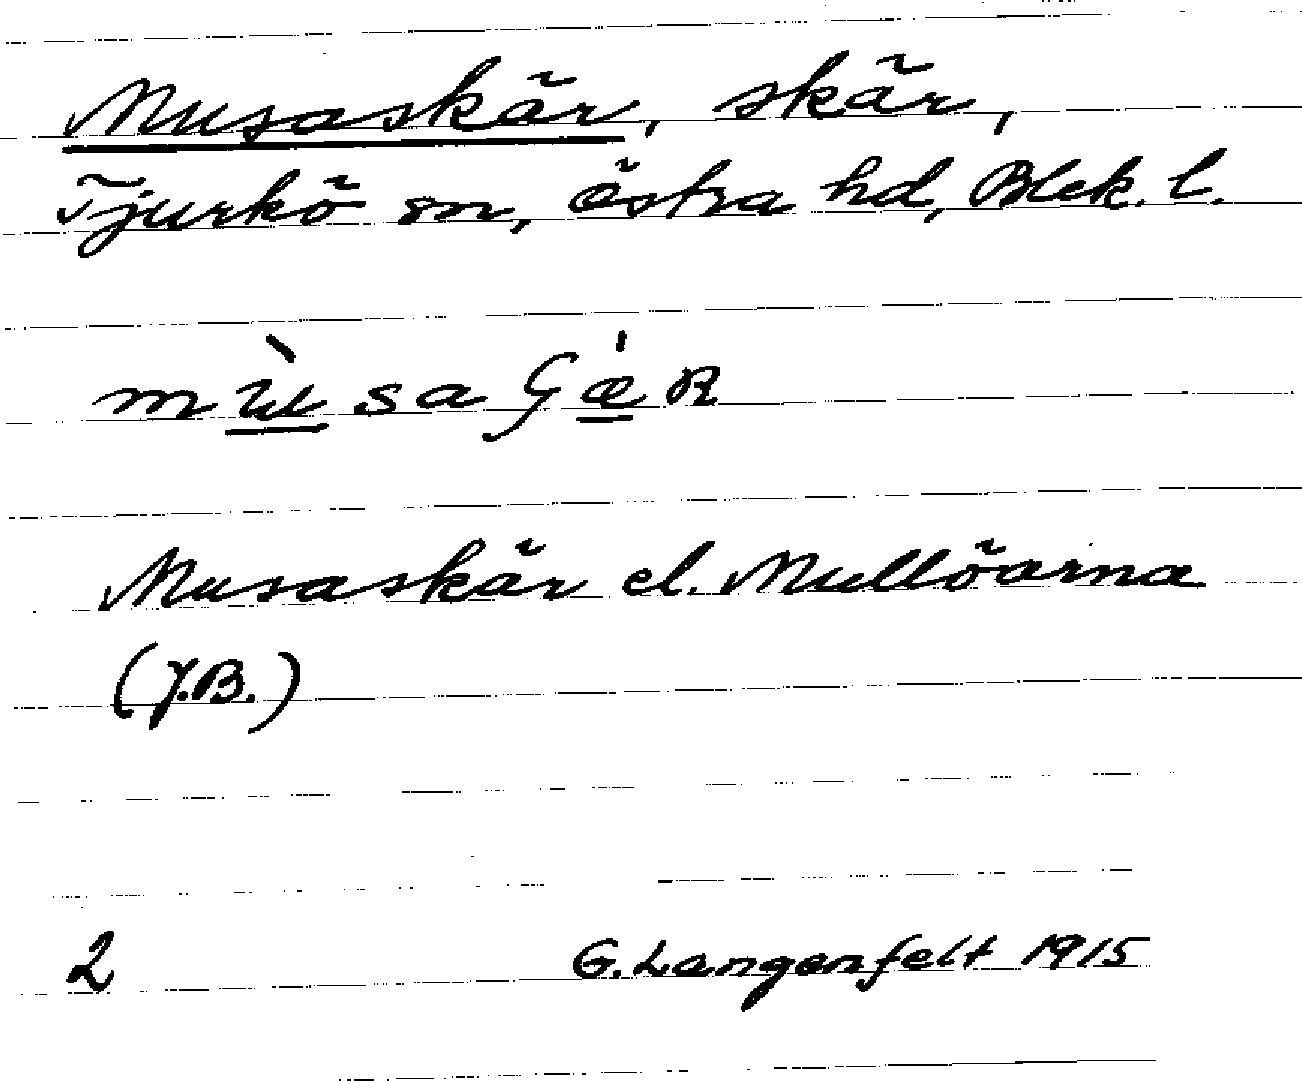 Musaskär, skär,
Tjurkö sn, östra hd, Blek. l.
mùsaʃǽR
Musaskär el. Mullöarna
(J.B.)
2 G. Langenfelt 1915